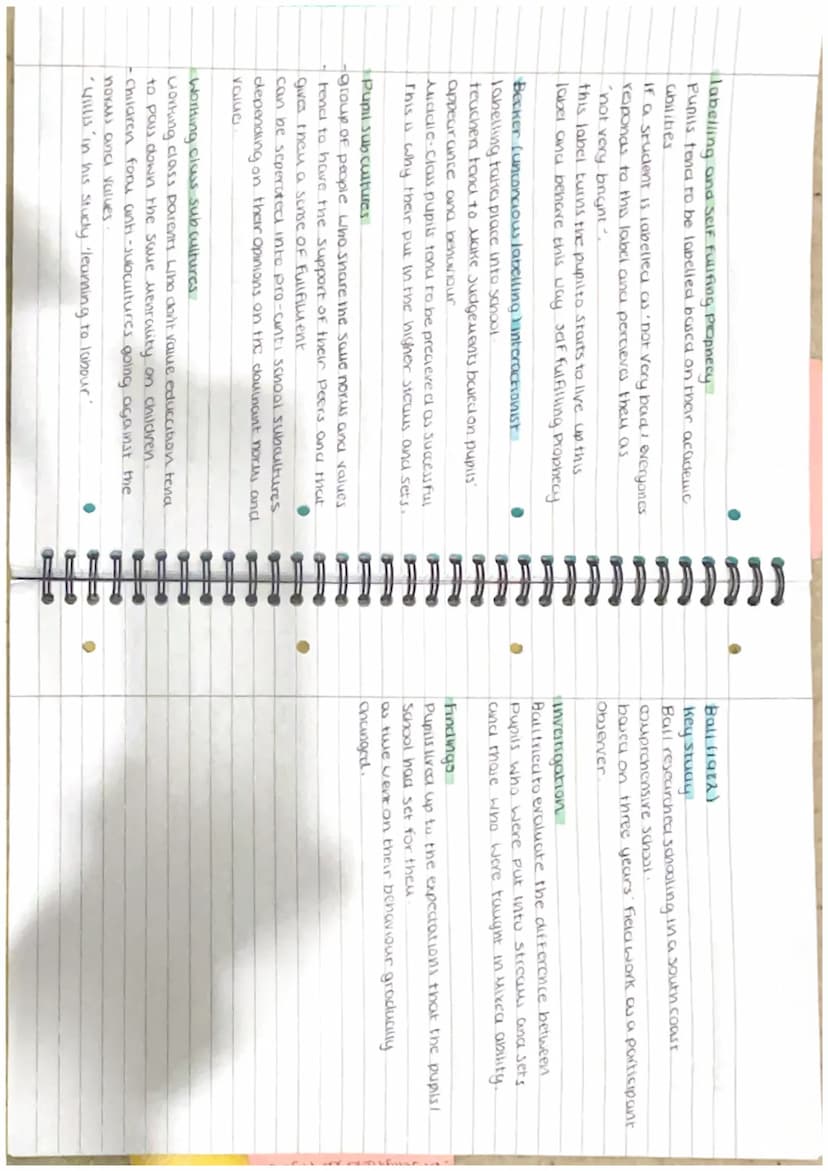 labelling and self fulfiling Prophecy
Pupils tend to be labelled based on their academic
abilities
If a student is labelled as 'not very bad, everyones
responds to this label and percieves them as
'not very bright'.
this label turns the pupil to starts to live up this
label and behave this way self fulfilling Prophecy
Becker (unconcious labelling) interactionist
labelling takes place into school.
teachers tend to make judgements based on pupils'
appearance and behaviour
Middle-class pupils tend to be precieved as successful
This is why their put in the higher steams and sets.
Pupil subcultures
-group of people who share the same norms and values
· tend to have the support of their peers and that
gives them a sense of fulfilment
can be seperated into pro-anti school subcultures
depending on their opinions on the dominant norms and
value.
Working class subcultures
working class parents who don't value education tend
to pass down the same mentality on children.
- children form anti-subcultures going against the
norms and values.
'Willis' in his study 'learning to labour'
Ball (1982)
Key study
Ball researched schooling in a south coast
comprehensive school.
based on three years' field work as a participant
observer.
investigation
Ball tried to evaluate the difference between
pupils who were put into streams and sets
and those who were taught in mixed ability.
Findings
Pupils lived up to the expectations that the pupils/
school had set for them.
as time went on their behaviour gradually
changed.